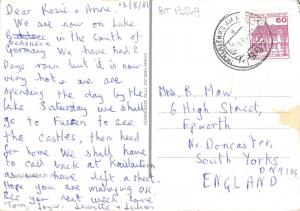 Dear Rosie + Anne. 13/8/81
We are now on Lake
Bodensee in the south of
Germany We have had 2
Days rain but it is now
very hot. we are
spending the day by the
Lake Saturday we shall
go to Fussen to see
the Castles, then head
for home We shall have
to call back at
as we have left a sheet
Hope you are managing OK
See you next week Love
Tom, Joyce,
BT 1359
60
Mrs. R. Maw,
6 High Street,
Epworth
N. Doncaster,
South Yorks
DN9 1
ENGLAND